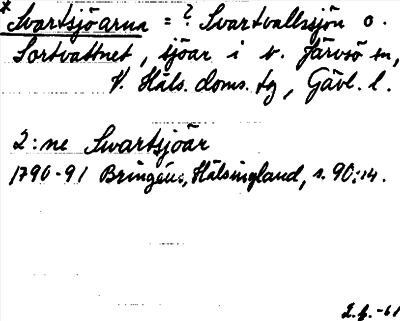 * Svartsjöarna = ? Svartvallssjön o.
Sortvattnet, sjöar i v. Järvsö sn,
V. Häls. doms. tg, Gävl. l.
2:ne Swartsjöar
1790-91 Bringéus, Hälsingland, s. 90:14.
2.6.-61